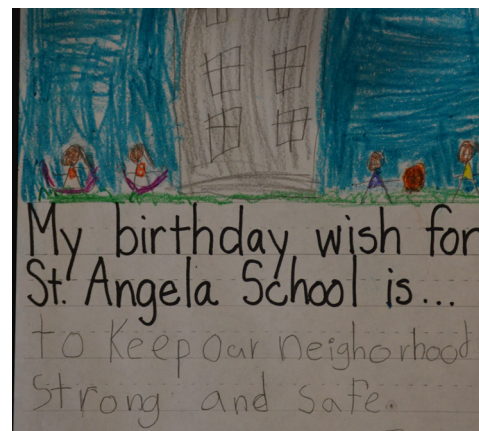 My birthday wish for
St. Angela School is...
to keep our neighorhood
Strong and safe.